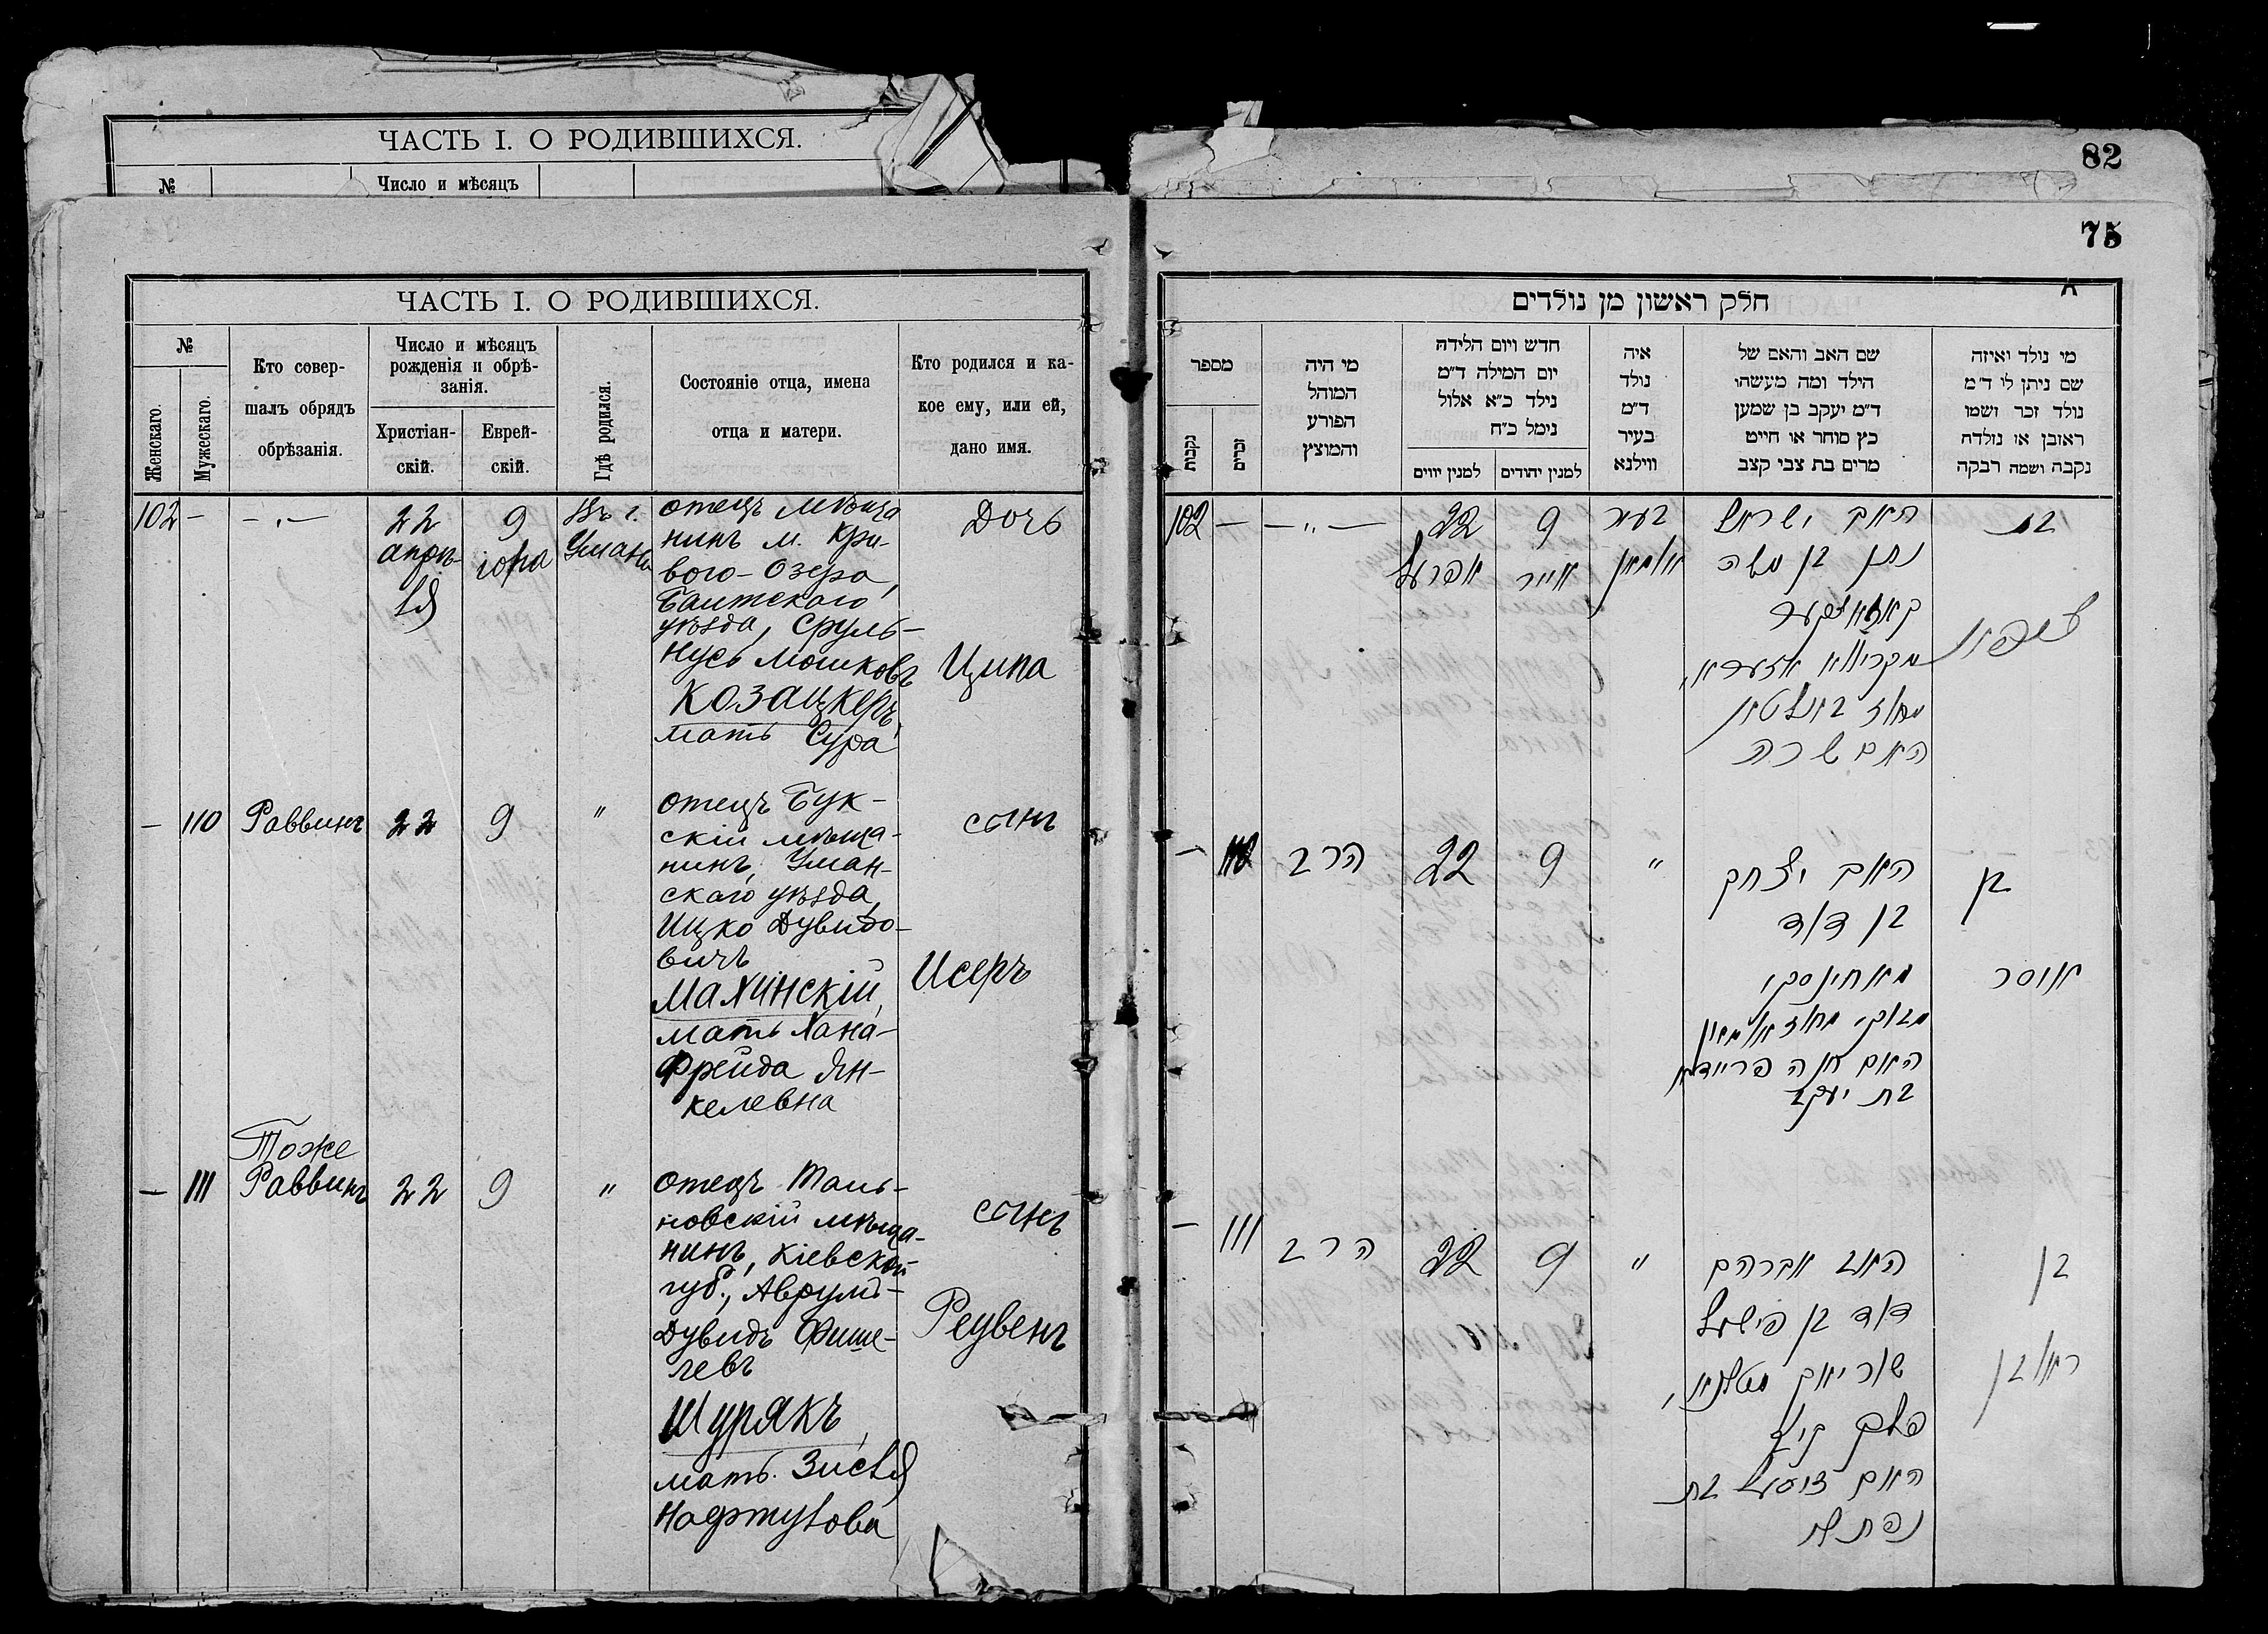 ЧАСТЬ I. О РОДИВШИХСЯ.
№
Число и мѣсяцъ
82
75
ЧАСТЬ I. О РОДИВШИХСЯ.
№
Женскаго.
Мужескаго.
Кто совер-
шалъ обрядъ
обрѣзанія.
Число и мѣсяцъ
рожденія и обрѣ-
занія.
Христіан-
скій.
Еврей-
скій.
Гдѣ родился.
Состояніе отца, имена
отца и матери.
Кто родился и ка-
кое ему, или ей,
дано имя.
102 -
22
апрѣ-
ля
9
Въ г.
Умани
отецъ мѣща
нинъ м. Кри-
вого-Озера,
Балтскаго
уѣзда, Сруль-
Нусь Мошковъ
КОЗАЦКЕРЪ,
мать Сура
Дочь
Ципа
— 110 Раввинъ 22 9 "
отецъ Бук-
скій мѣща-
нинъ, Уман-
скаго уѣзда,
Ицко Дувидо-
вичъ
МАХИНСКІЙ,
мать Хана-
Фрейда Ян-
келевна
сынъ
Исеръ
Тоже
— 111 Раввинъ 22 9 "
отецъ Таль-
новскій мѣща-
нинъ, Кіевской
губ., Аврумъ-
Дувидъ Фише-
левъ
ШУРЯКЪ,
мать Зисля
Нафтулова
сынъ
Реувенъ
חלק ראשון מן נולדים
מספר
נקבות
זכרים
מי היה
המוהל
הפורע
והמוצץ
חדש ויום הלידה
יום המילה ד״מ
נילד כ״א אלול
נימל כ״ח
למנין יווים
למנין יהודים
איה
נולד
ד״מ
בעיר
ווילנא
שם האב והאם של
הילד ומה מעשהו
ד״מ יעקב בן שמען
כץ סוחר או חייט
מרים בת צבי קצב
מי נולד ואיזה
שם ניתן לו ד״מ
נולד זכר ושמו
ראובן או נולדה
נקבה ושמה רבקה
102 — — " —
22
אפרעל
9
אייר
בעיר
אומאן
האב ישראל
נתן בן משה
קאזאצקער
האם שרה
בת
ציפא
— 110 הרב 22 9 "
האב יצחק
בן דוד
מאחינסקי
האם חנה פריידא
בת יעקב
בן
איסר
— 111 הרב 22 9 "
האב אברהם
דוד בן פישעל
שוריאק
פלך קיוב
האם זיסעל בת
נפתלי
בן
ראובן